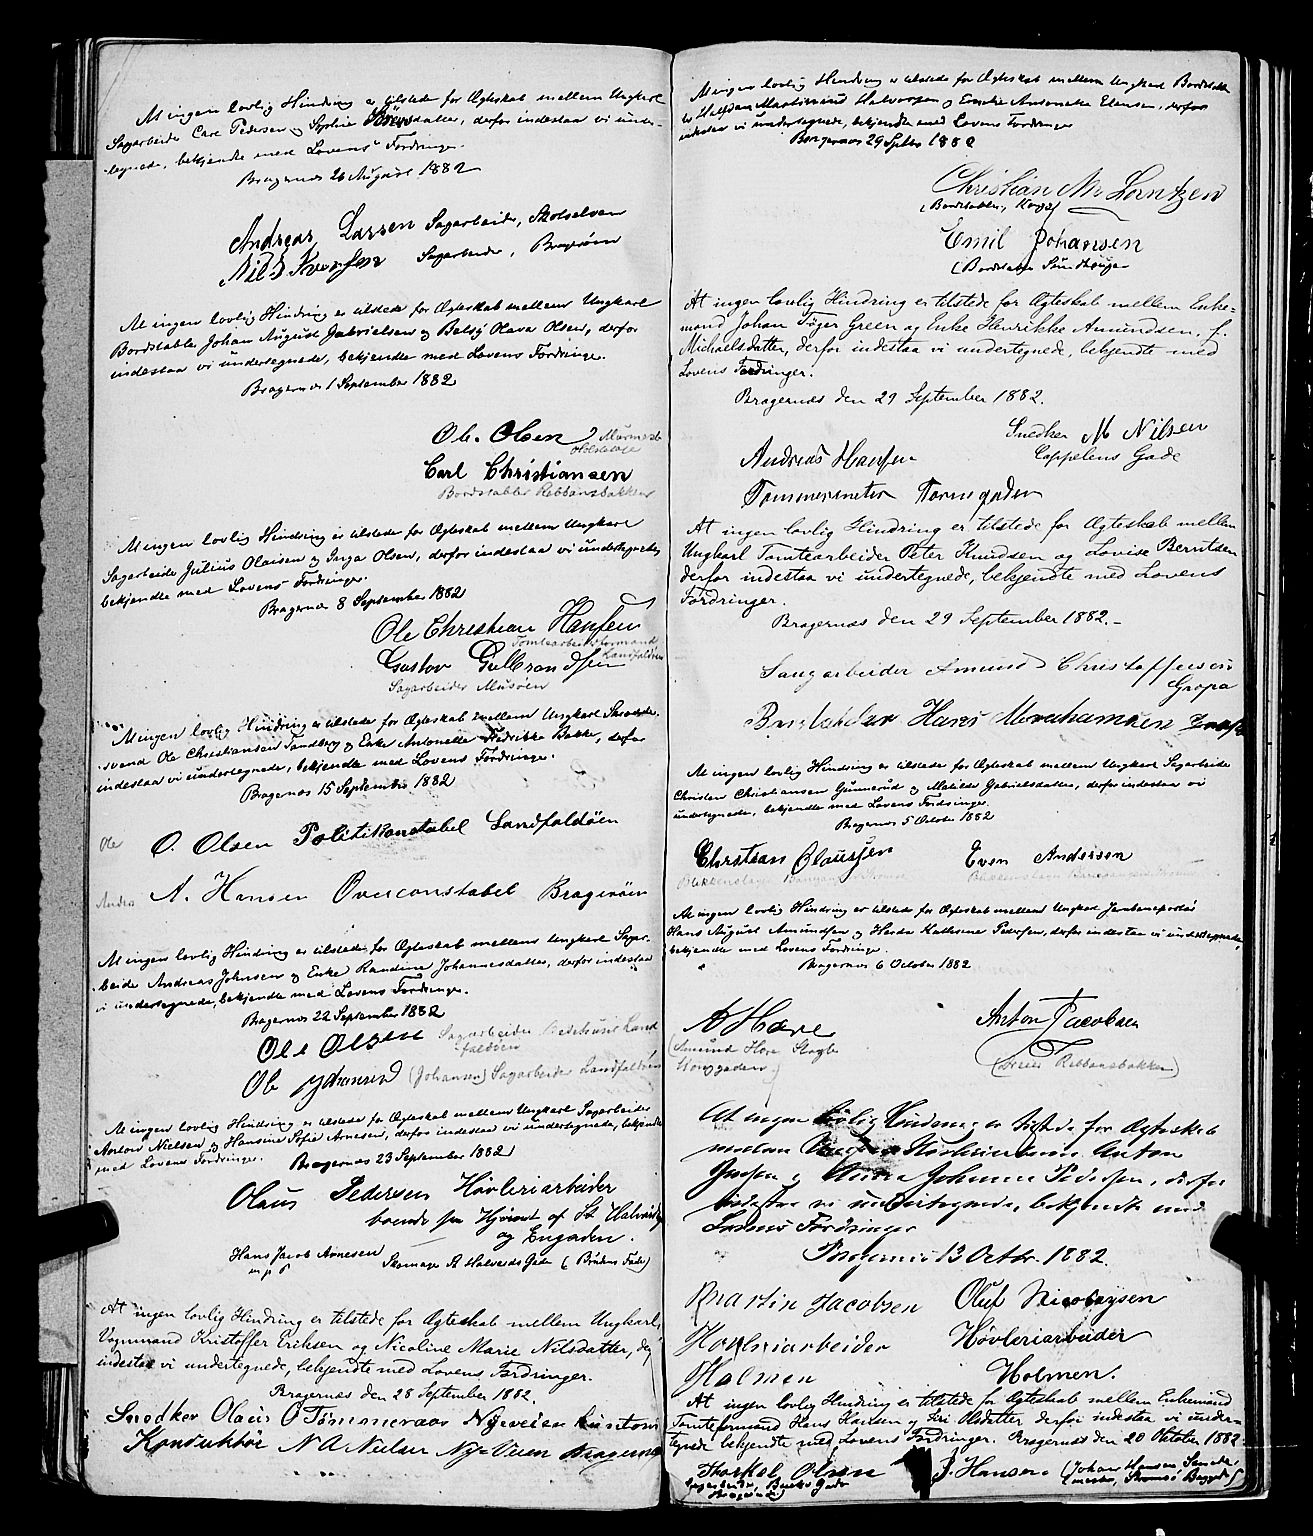 At ingen lovlig Hindring er tilstede for Ægteskab mellem Ungkarl
Sagarbeider Carl Pedersen og Sophie Sörensdatter, derfor indestaa vi under-
tegnede, bekjendte med Lovens Fordringer.
Bragernæs 26 August 1882
Andreas Larsen Sagarbeider, Skotselven
Nils Svensen Sagarbeider, Bragerøen
At ingen lovlig Hindring er tilstede for Ægteskab mellem Ungkarl
Bordstabler Johan August Gabrielsen og Olava Olsen, derfor
indestaa vi undertegnede, bekjendte med Lovens Fordringer.
Bragernæs 1 September 1882
Ole Olsen
Carl Christiansen
Bordstabler Rebbansbakken
At ingen lovlig Hindring er tilstede for Ægteskab mellem Ungkarl
Sagarbeider Julius Olausen og Inga Olsen, derfor indestaa vi undertegnede,
bekjendte med Lovens Fordringer.
Bragernæs 8 September 1882
Ole Christian Hansen
Tomtearbeidsformand
Landfaldøen
Gustav Gulbrandsen
Sagarbeider Musøen
At ingen lovlig Hindring er tilstede for Ægteskab mellem Ungkarl
svend Ole Christiansen Sandberg og Enke Antonette Fredrikke Bakke, derfor
indestaa vi undertegnede, bekjendte med Lovens Fordringer.
Bragernæs 15 September 1882
Ole O. Olsen Politikonstabel Landfaldöen
Andr. A. Hansen Overconstabel Bragerøen
At ingen lovlig Hindring er tilstede for Ægteskab mellem Ungkarl Sagar-
beider Andreas Johnsen og Enke Randine Johannesdatter, derfor indestaa
vi undertegnede, bekjendte med Lovens Fordringer.
Bragernæs 22 September 1882
Ole Olsen Sagarbeider Land
faldöen
Ole Johansen (Johansen) Sagarbeider Landfaldöen
At ingen lovlig Hindring er tilstede for Ægteskab mellem Ungkarl Sagarbeider
Anton Nielsen og Hansine Sofie Arnesen, derfor indestaa vi undertegnede, bekjendte
med Lovens Fordringer.
Bragernæs 23 September 1882
Olaus Pedersen Høvleriarbeider
boende paa Hjörnet af St Halvards
og Engaden.
Hans Jacob Arnesen Skomager St Halvards Gade (Brudens Fader)
m p P
At ingen lovlig Hindring er tilstede for Ægteskab mellem Ungkarl,
Vognmand Kristoffer Eriksen og Nicoline Marie Nilsdatter, derfor
indestaa vi undertegnede, bekjendte med Lovens Fordringer.
Bragernæs den 28 September 1882.
Snedker Olaus O Tömmeraas Nyeveien
Konduktör N A Nielsen Ny-Veien Bragernæs
At ingen lovlig Hindring er tilstede for Ægteskab mellem Ungkarl Bordstab-
ler Halfdan Martinius Halvorsen og Emilie Antonette Ellensen, derfor
indestaa vi undertegnede, bekjendte med Lovens Fordringer
Bragernæs 29 Septbr 1882
Christian M. Lorntzen
(Bordstabler, Korpen)
Emil Johansen
(Bordstabler Sundhaugen
At ingen lovlig Hindring er tilstede for Ægteskab mellem Enke-
mand Johan Töger Green og Enke Henrikke Amundsen, f.
Michaelsdatter, derfor indestaa vi undertegnede, bekjendte med
Lovens Fordringer.
Bragernæs den 29 September 1882.
Snedker M Nilsen
Cappelens Gade
Andreas Hansen
Tømmermester Tornegaden
At ingen lovlig Hindring er tilstede for Ægteskab mellem
Ungkarl Tomtearbeider Peter Knudsen og Lovise Berntsen
derfor indestaa vi undertegnede, bekjendte med Lovens
Fordringer.
Bragernæs den 29 September 1882.
Saugarbeider Amund Christoffersen
Gropa
Hans Abrahamsen
At ingen lovlig Hindring er tilstede for Ægteskab mellem Ungkarl Sagarbeider
Christen Christiansen Gunnerud og Matilde Gabrielsdatter, derfor indestaa vi
undertegnede, bekjendte med Lovens Fordringer.
Bragernæs 5 October 1882
Christian Claussen Even Andersen
At ingen lovlig Hindring er tilstede for Ægteskab mellem Ungkarl Jernbaneportör
Hans August Amundsen og Herda Kathrine Pedersen, derfor indestaa vi undertegnede,
bekjendte med Lovens Fordringer
Bragernæs 6 October 1882
A Hære Anton Jacobsen
(Amund Hære
Kongegaden) Rebbansbakken)
At ingen lovlig Hindring er tilstede for Ægteskab
mellem Anton
Jensen og Anna Johanne Pedersen, derfor
indestaa vi undertegnede, bekjendte med
Lovens Fordringer
Bragernæs 13 Octbr. 1882.
Martin Jacobsen Oluf Nicolaysen
Hövleriarbeider Hövleriarbeider
Holmen Holmen.
At ingen lovlig Hindring er tilstede for Ægteskab mellem Enkemand
Tomteformand Hans Hansen og Siri Olsdatter derfor indestaa vi under-
tegnede bekjendte med Lovens Fordringer. Bragernæs den 20 Oktober 1882
Thorkel Olsen J. Hansen (Johan Hansen
Sagarbeider, Gade Strømsö
Bragernæs)